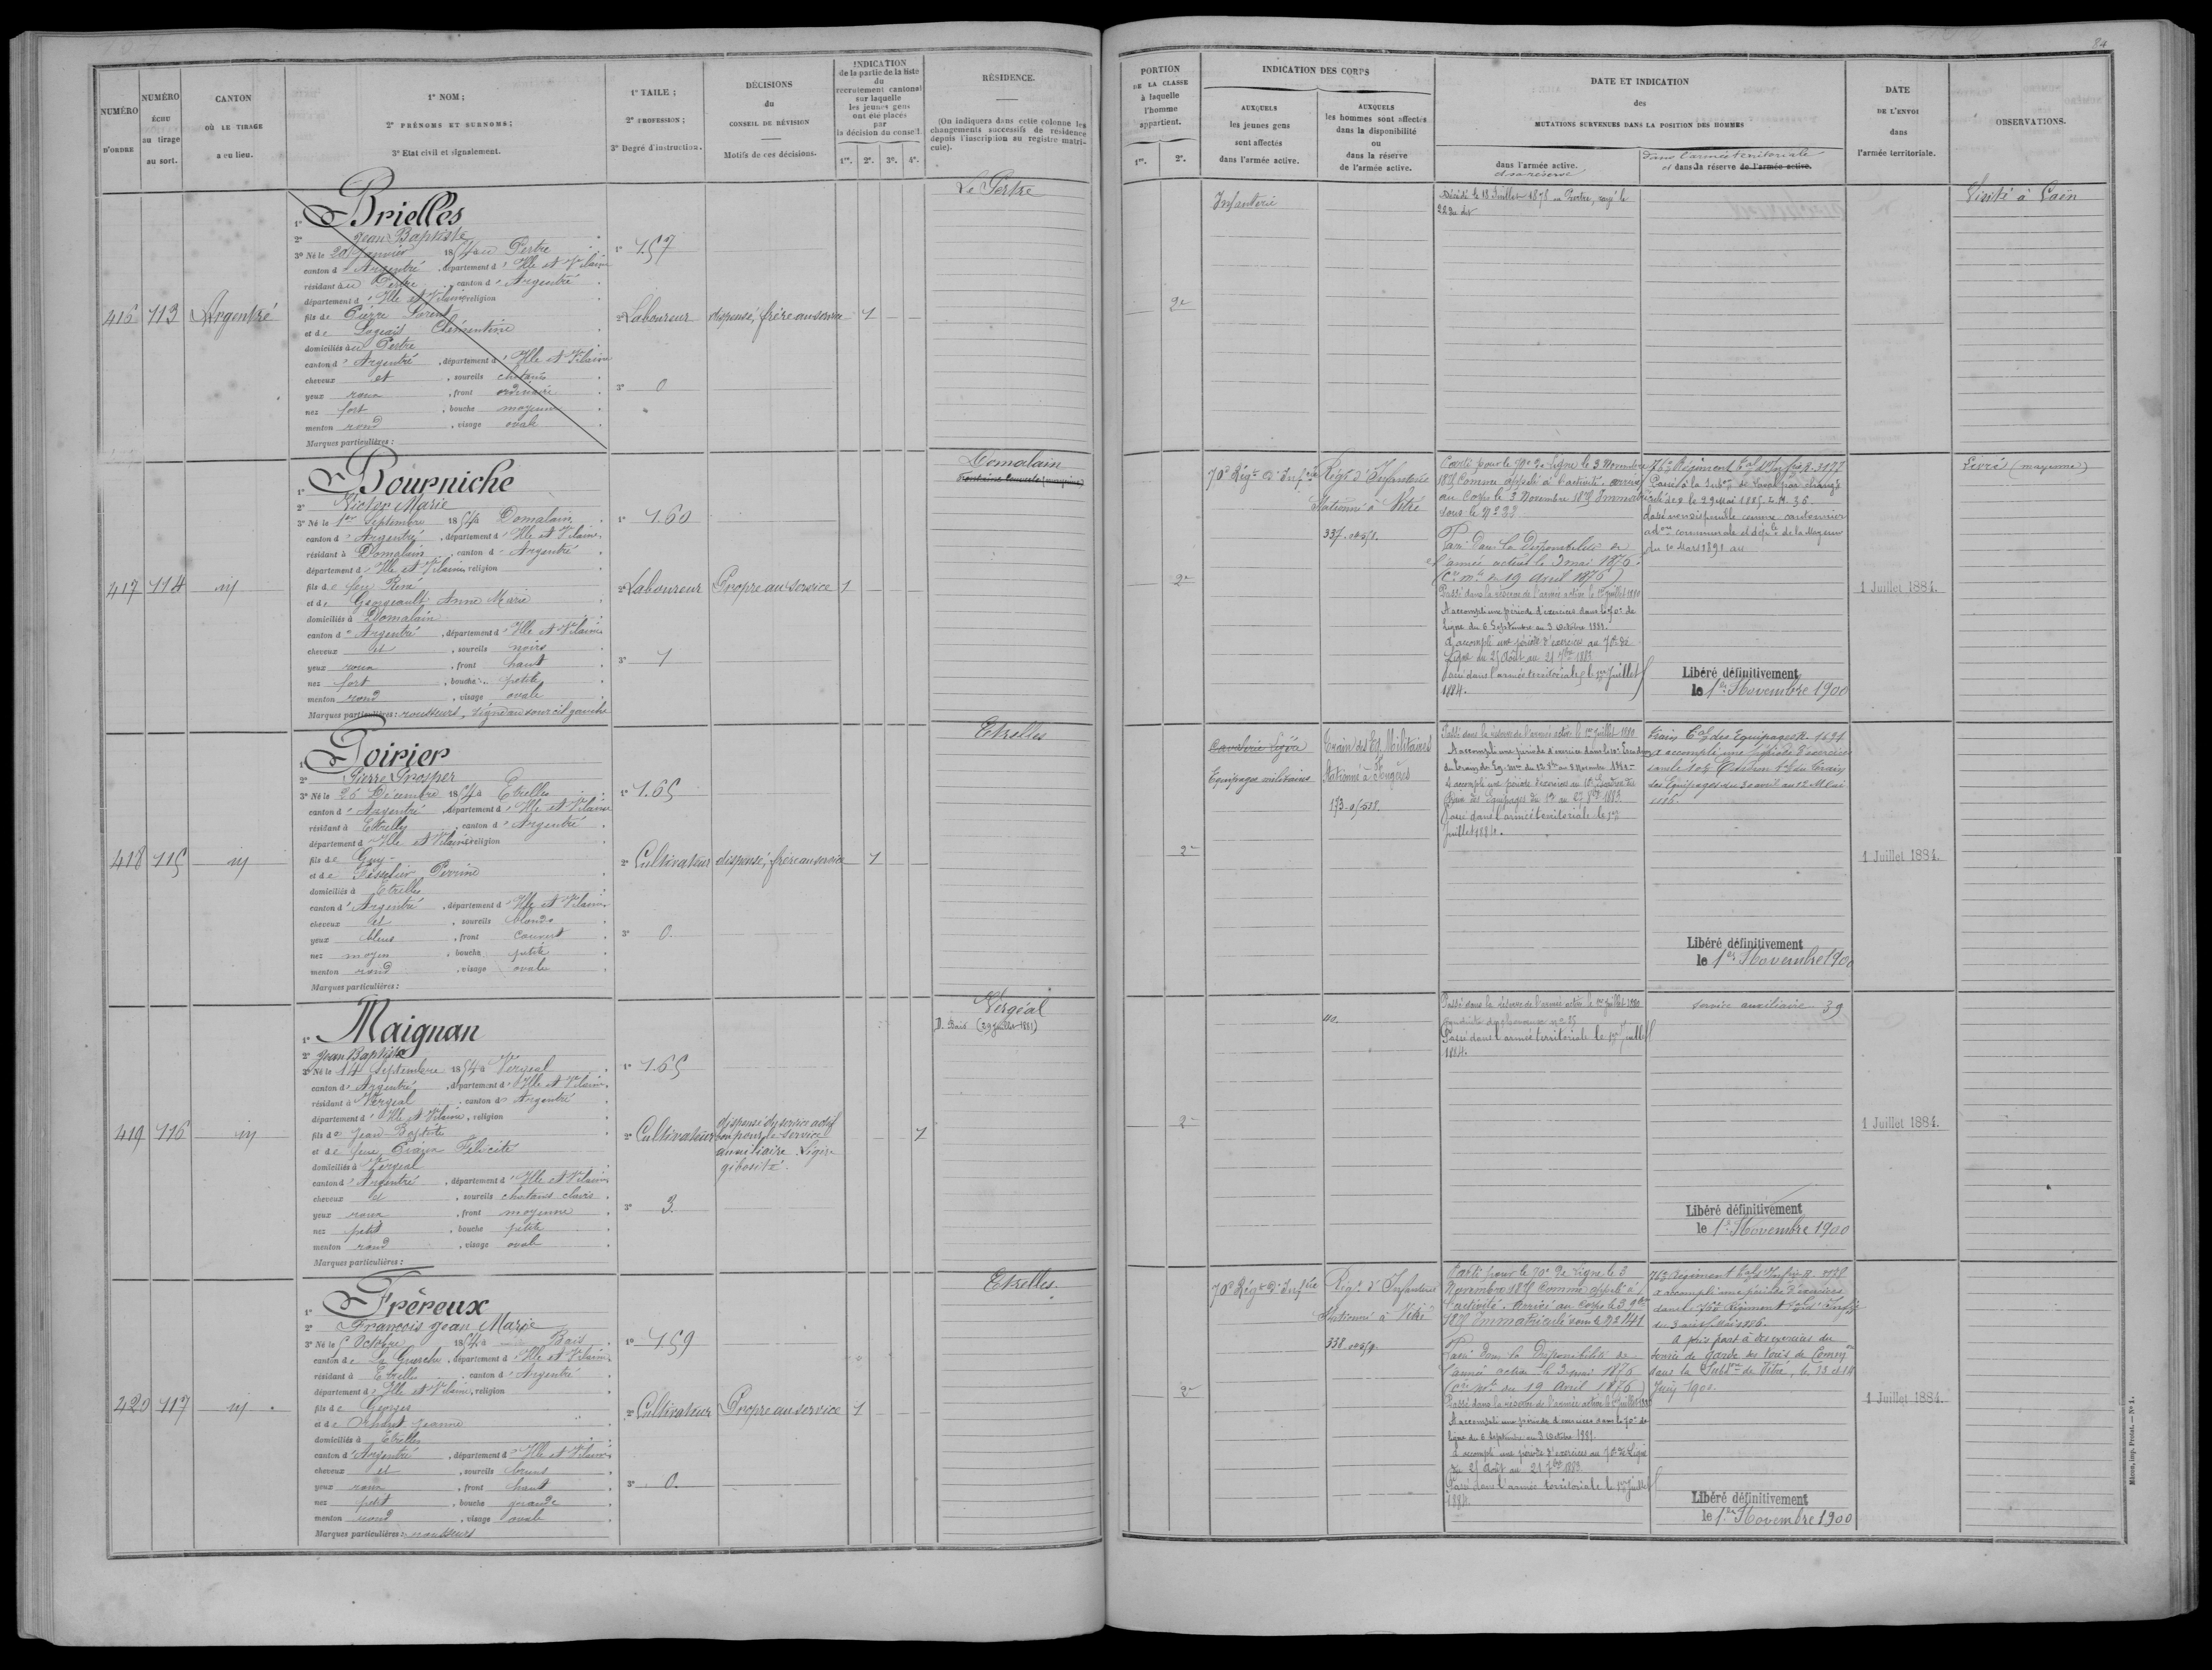 24
NUMÉRO D'ORDRE
NUMÉRO ÉCHU au tirage au sort.
CANTON OÙ LE TIRAGE a eu lieu.
1° NOM;
2° PRÉNOMS ET SURNOMS;
3° Etat civil et signalement.
1° TAILE;
2° PROFESSION;
3° Degré d'instruction.
DÉCISIONS du CONSEIL DE RÉVISION
Motifs de ces décisions.
INDICATION de la partie de la liste du recrutement cantonal sur laquelle les jeunes gens ont été placés par la décision du conseil.
1re. 2e. 3e. 4e.
RÉSIDENCE.
(On indiquera dans cette colonne les changements successifs de résidence depuis l'inscription au registre matricule).
PORTION DE LA CLASSE à laquelle l'homme appartient.
1re. 2e.
INDICATION DES CORPS
AUXQUELS les jeunes gens sont affectés dans l'armée active.
AUXQUELS les hommes sont affectés dans la disponibilité ou dans la réserve de l'armée active.
DATE ET INDICATION des MUTATIONS SURVENUES DANS LA POSITION DES HOMMES
dans l'armée active.
et sa réserve
dans l'armée territoriale
et dans la réserve de l'armée active.
DATE DE L'ENVOI dans l'armée territoriale.
OBSERVATIONS.
416 113 Argentré
1° Brielles
2° Jean Baptiste
3° Né le 20 Janvier 1854 au Pertre
canton d'Argentré, département d'Ille et Vilaine
résidant au Pertre, canton d'Argentré
département d'Ille et Vilaine religion
fils de Pierre
et de Clémentine
domiciliés au Pertre
canton d'Argentré, département d'Ille et Vilaine
cheveux et, sourcils chatains
yeux roux, front ordinaire
nez fort, bouche moyenne
menton rond, visage ovale
Marques particulières:
1° 1.57
2° Laboureur
3° 0
dispensé, frère au service
1
Le Pertre
2e
Infanterie
Décédé le 18 Juillet 1878 au Pertre, rayé le
22 du dit
Visité à Caen
417 114 id
1° Bourniche
2° Victor Marie
3° Né le 1er Septembre 1854 à Domalain
canton d'Argentré, département d'Ille et Vilaine
résidant à Domalain, canton d'Argentré
département d'Ille et Vilaine religion
fils de feu René
et de Georgeault Anne Marie
domiciliés à Domalain
canton d'Argentré, département d'Ille et Vilaine
cheveux et, sourcils noirs
yeux roux, front haut
nez fort, bouche petite
menton rond, visage ovale
Marques particulières: rousseurs, signe au sourcil gauche
1° 1.60
2° Laboureur
3° 1
Propre au service
1
Domalain
2e
70e Régt d'Infrie
Régt d'Infanterie
Stationné à Vitré
337
Parti pour le 70e de Ligne le 3 Novembre
1875 Comme appelé à l'activité. arrivé
au Corps le 3 Novembre 1875 Immatriculé
sous le N°
Passé dans la Disponibilité de
l'armée active le 3 mai 1876
(Cre mle du 19 avril 1876)
Passé dans la réserve de l'armée active le 1er Juillet 1880
A accompli une période d'exercices dans le 70e de
Ligne du 6 Septembre au 3 Octobre 1881.
A accompli une période d'exercices au 70e de
Ligne du 25 Août au 21 7bre 1883
Passé dans l'armée territoriale le 1er Juillet
1884.
76e Régiment tal d'Infrie
Passé à la Subon de Laval par changt
de résidence le 29 Mai 1885
Classé non disponible comme cantonnier
communale et déple de la Mayenne
du 10 Mars 1891 au
Libéré définitivement
le 1er Novembre 1900
1 Juillet 1884.
Livré (mayenne)
418 115 id
1° Poirier
2° Pierre Prosper
3° Né le 26 Décembre 1854 à Etrelles
canton d'Argentré, département d'Ille et Vilaine
résidant à Etrelles, canton d'Argentré
département d'Ille et Vilaine religion
fils de Guy
et de Perrine
domiciliés à Etrelles
canton d'Argentré, département d'Ille et Vilaine
cheveux et, sourcils blonds
yeux bleus, front couvert
nez moyen, bouche petite
menton rond, visage ovale
Marques particulières:
1° 1.65
2° Cultivateur
3° 0.
dispensé, frère au service
1
Etrelles
2e
Cavalerie légère
Equipages militaires
Train des Eq. Militaires
Stationné à Fougères
Passé dans la réserve de l'armée active le 1er Juillet 1880
A accompli une période d'exercices dans le 10e Escadron
du train des Eq. mres
A accompli une période d'exercices au 10e Escadron du
Train des Equipages
Passé dans l'armée territoriale le 1er
Juillet 1884.
Train tal des Equipages
a accompli une période d'exercices
dans le 10e Escadron tal du train
des Equipages du 30 avril au 12 Mai
1886.
Libéré définitivement
le 1er Novembre 1900
1 Juillet 1884.
419 116 id
1° Maignan
2° Jean Baptiste
3° Né le 14 Septembre 1854 à Vergeal
canton d'Argentré, département d'Ille et Vilaine
résidant à Vergeal, canton d'Argentré
département d'Ille et Vilaine, religion
fils de Jean Baptiste
et de feue Félicité
domiciliés à Vergeal
canton d'Argentré, département d'Ille et Vilaine
cheveux et, sourcils chatains clairs
yeux roux, front moyenne
nez petit, bouche petite
menton rond, visage ovale
Marques particulières:
1° 1.65
2° Cultivateur
3° 3.
dispensé du service actif
bon pour le service
auxiliaire. Légère
gibosité.
1
Vergéal
D. Bais (29 juillet 1881)
2e
Passé dans la réserve de l'armée active le 1er Juillet 1880
Passé dans l'armée territoriale le 1er Juillet
1884.
Service auxiliaire 39
Libéré définitivement
le 1er Novembre 1900
1 Juillet 1884.
420 117 id
1° Fréreux
2° François Jean Marie
3° Né le 5 Octobre 1854 à Bais
canton de La Guerche, département d'Ille et Vilaine
résidant à Etrelles, canton d'Argentré
département d'Ille et Vilaine, religion
fils de Georges
et de Jeanne
domiciliés à Etrelles
canton d'Argentré, département d'Ille et Vilaine
cheveux et, sourcils bruns
yeux roux, front haut
nez petit, bouche grande
menton rond, visage ovale
Marques particulières: rousseurs
1° 1.59
2° Cultivateur
3° 0.
Propre au service
1
Etrelles
2e
70e Régt d'Inftie
Régt d'Infanterie
Stationné à Vitré
338
Parti pour le 70e de Ligne le 3
Novembre 1875 Comme appelé à
l'activité. Arrivé au Corps le 3 9bre
1875 Immatriculé sous le N° 2141
Passé dans la Disponibilité de
l'armée active le 3 mai 1876
(Cre mle du 19 Avril 1876)
Passé dans la réserve de l'armée active le 1er Juillet 1880
A accompli une période d'exercices dans le 70e de
Ligne du 6 Septembre au 3 Octobre 1881.
A accompli une période d'exercices au 70e de Ligne
du 25 Août au 21 7bre 1883
Passé dans l'armée territoriale le 1er Juillet
1884.
76e Régiment tal d'Infrie
a accompli une période d'exercices
dans le 76e Régiment tal d'Infrie
A pris part à des exercices du
service de garde des voies de Comon
dans la Subon de Vitré, le 13 et 14
Juin 1900.
Libéré définitivement
le 1er Novembre 1900
1 Juillet 1884.